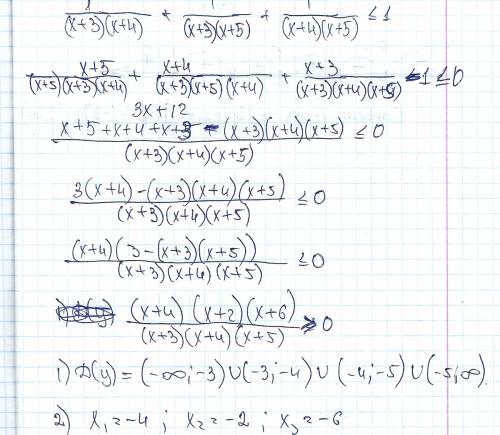 1/((x+3)(x+4)) + 1/((x+3)(x+5)) + 1/((x+4)(x+5)) ≤ 1
(x+5)/((x+5)(x+3)(x+4)) + (x+4)/((x+3)(x+5)(x+4)) + (x+3)/((x+3)(x+4)(x+5)) - 1 ≤ 0
3x+12
(x+5+x+4+x+3 - (x+3)(x+4)(x+5))/((x+3)(x+4)(x+5)) ≤ 0
(3(x+4) - (x+3)(x+4)(x+5))/((x+3)(x+4)(x+5)) ≤ 0
((x+4)(3-(x+3)(x+5)))/((x+3)(x+4)(x+5)) ≤ 0
((x+4)(x+2)(x+6))/((x+3)(x+4)(x+5)) ≥ 0
1) D(y) = (-∞;-3)∪(-3;-4)∪(-4;-5)∪(-5;∞).
2) x₁=-4 ; x₂=-2 ; x₃=-6